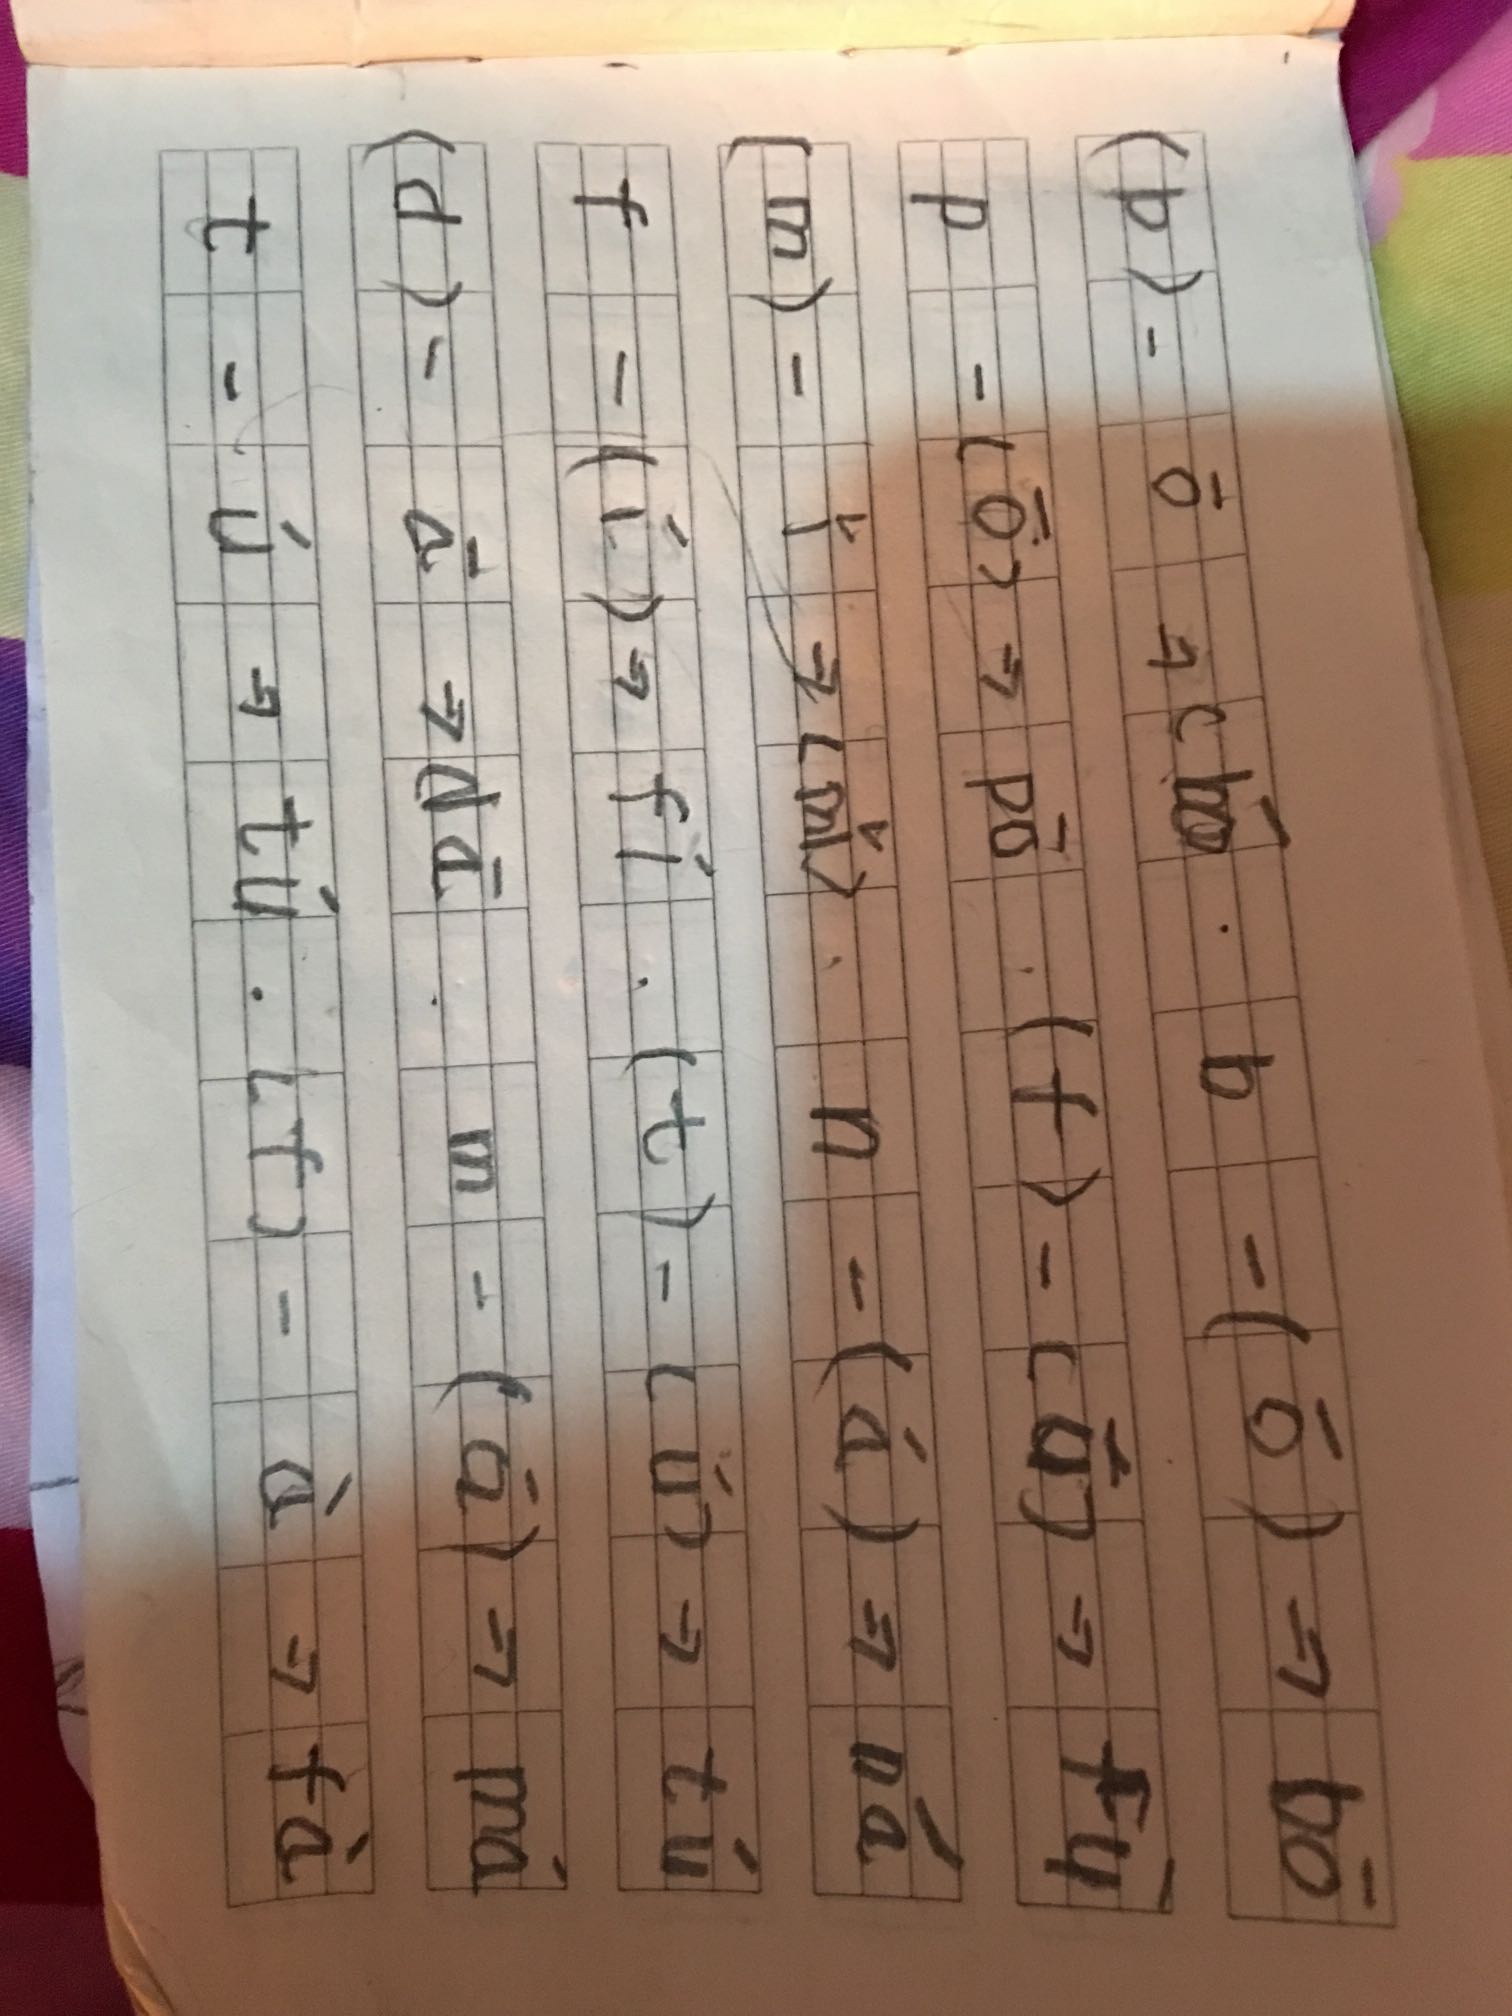 (b) - ō → (bō) . b - (ō) → bō
p - (ō) → pō . (f) - (ū) → fū
(m) - ǐ → (mǐ) . n - (á) → ná
f - (í) → fí . (t) - (ú) → tú
(d) - ā → dā . m - (á) → má
t - ú → tú . (f) - à → fà